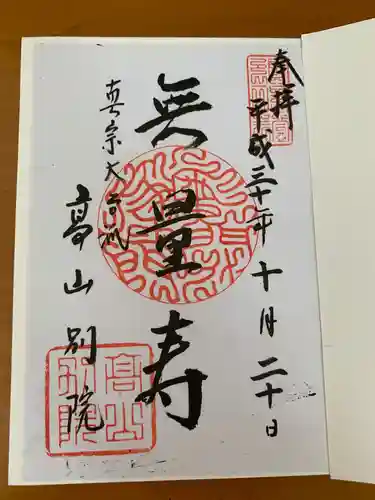 奉拝
平成三十年十月二十日
無量寿
真宗大谷派
高山別院
高山別院